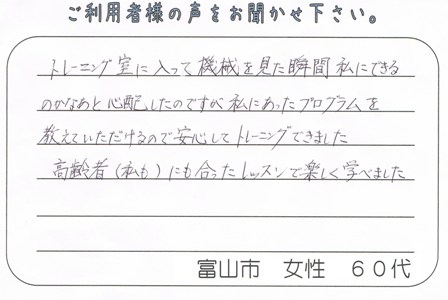 ご利用者様の声をお聞かせ下さい。
トレーニング室に入って機械を見た瞬間私にできる
のかなあと心配したのですが私にあったプログラムを
教えていただけるので安心してトレーニングできました
高齢者(私も)にも合ったレッスンで楽しく学べました
富山市 女性 60代